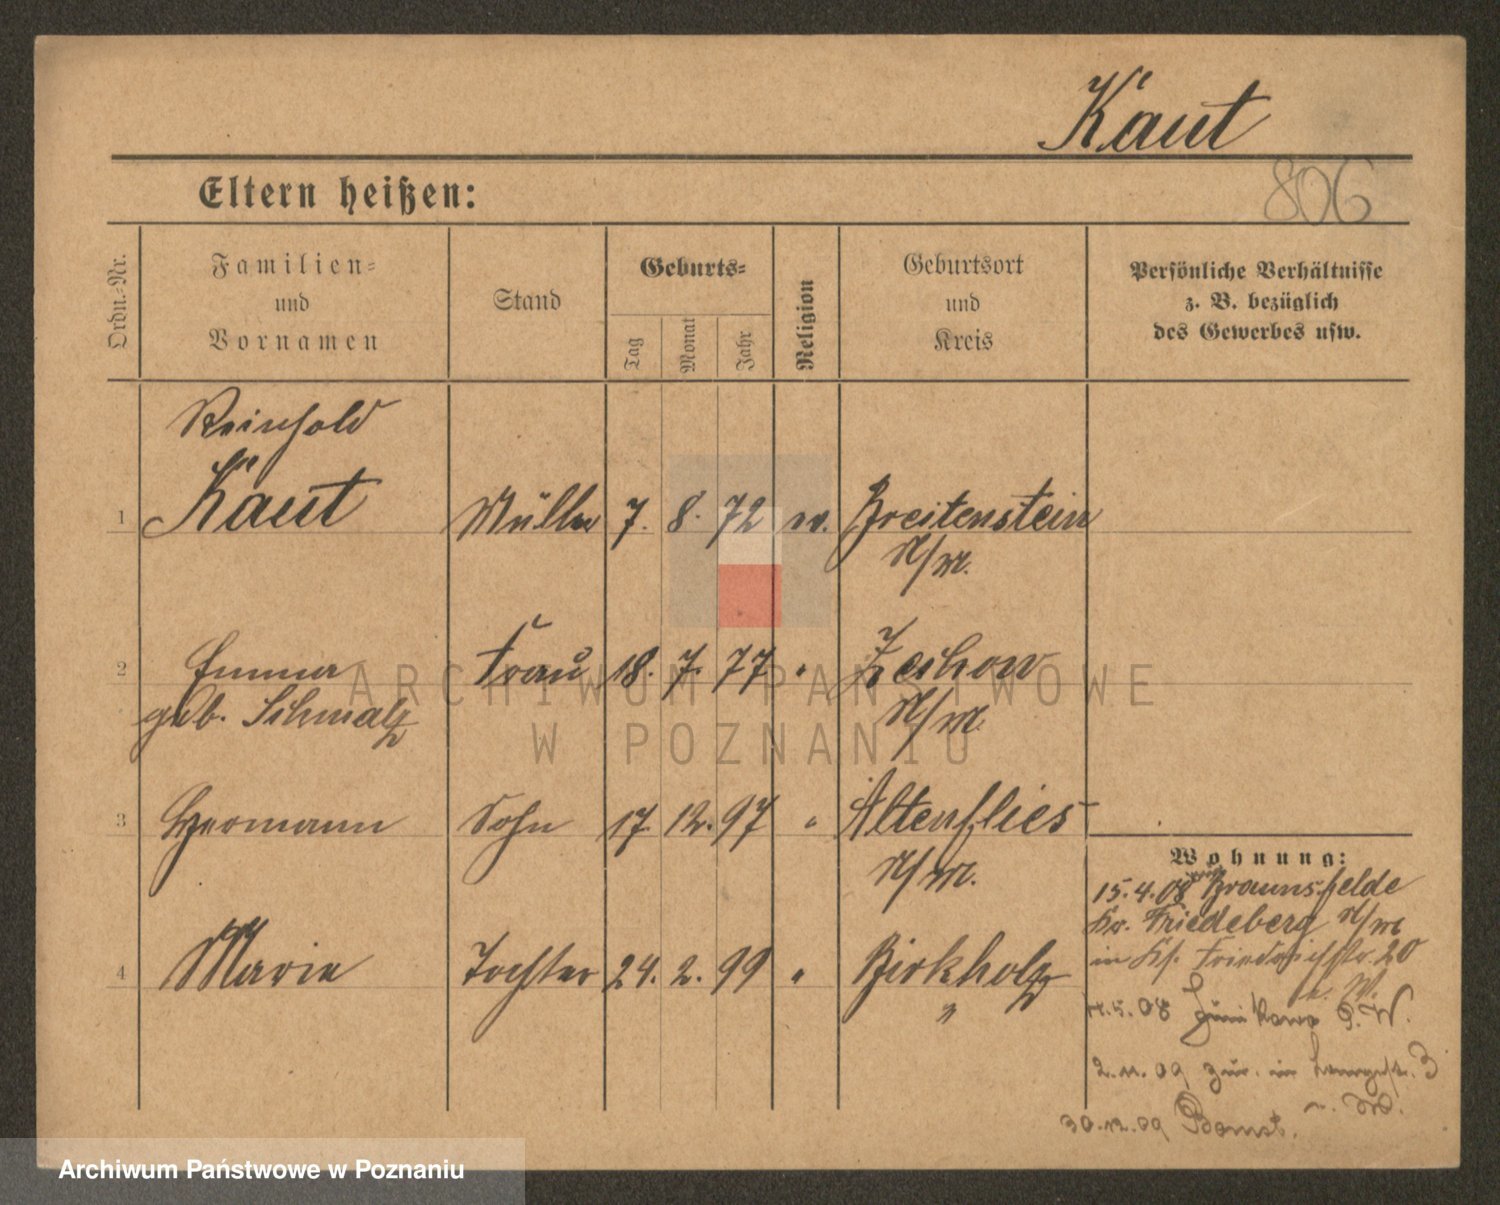 Kaut
806
Eltern heißen:
Ordn.-Nr.
Familien-
und
Vornamen
Stand
Geburts-
Tag
Monat
Jahr
Religion
Geburtsort
und
Kreis
Persönliche Verhältnisse
z. B. bezüglich
des Gewerbes usw.
Reinhold
1 Kaut Müller 7. 8. 72 ev. Breitenstein
N/M.
2 Emma Frau 18. 7. 77 " Zechow
geb. Schmalz N/M.
3 Hermann Sohn 17. 12. 97 " Altenflies
N/M.
4 Marie Tochter 24. 2. 99 " Birkholz
"
Wohnung:
15.4.08 Braunsfelde
Kr. Friedeberg N/M
in Friedrichstr. 20
.5.08 P.W.
2.11.09 zur. in 3
30.12.09 Bomst.
ARCHIWUM PAŃSTWOWE
W POZNANIU
Archiwum Państwowe w Poznaniu